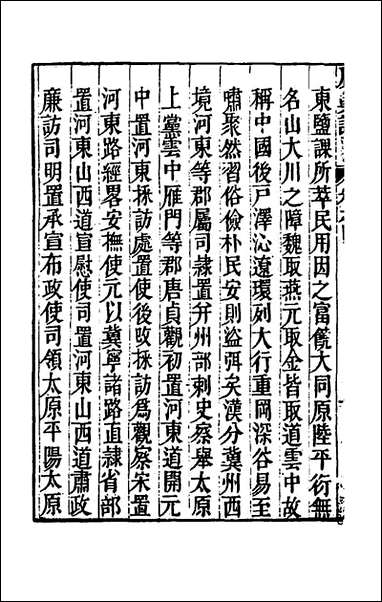 東鹽課所萃民用因之富饒大同原陸平衍無
名山大川之障魏取燕元取金皆取道雲中故
稱中國後戶澤沁遼環列大行重岡深谷易至
嘯聚然習俗儉朴民安則盜弭矣漢分冀州西
境河東等郡屬司隸置幷州部刺史察舉太原
上黨雲中雁門等郡唐貞觀初置河東道開元
中置河東採訪處置使後改採訪爲觀察宋置
河東路經畧安撫使元以冀寧諸路直隸省部
置河東山西道宣慰使司置河東山西道肅政
廉訪司明置承宣布政使司領太原平陽太原